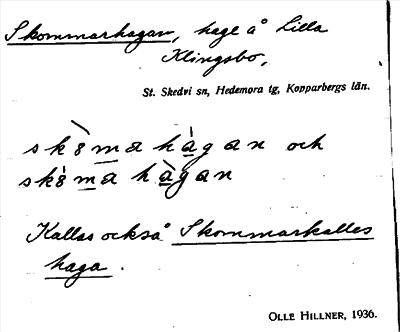 Skommarhagan, hage å Lilla
Klingsbo,
St. Skedvi sn, Hedemora tg, Kopparbergs län.
skòma hàgan och
skòma hàgan
Kallas också Skommarkalles
haga.
OLLE HILLNER, 1936.